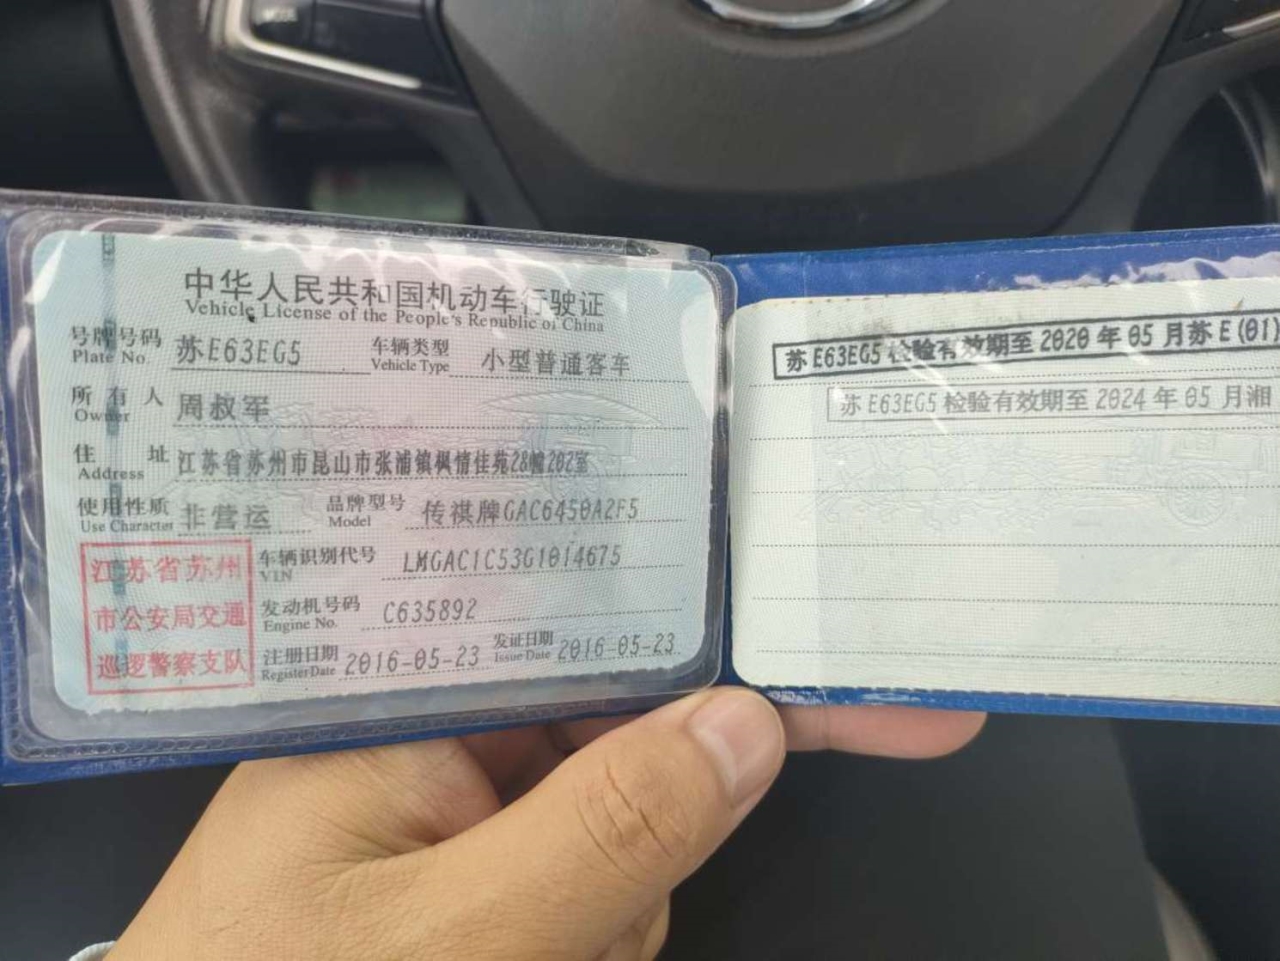 中华人民共和国机动车行驶证
Vehicle License of the People's Republic of China
号牌号码 苏E63EG5 车辆类型 小型普通客车
Plate No. Vehicle Type
所有人 周叔军
Owner
住址 江苏省苏州市昆山市张浦镇枫情佳苑28幢202室
Address
使用性质 非营运 品牌型号 传祺牌GAC6450A2F5
Use Character Model
车辆识别代号 LMGAC1C53G1014675
VIN
发动机号码 C635892
Engine No.
注册日期 2016-05-23 发证日期 2016-05-23
Register Date Issue Date
江苏省苏州
市公安局交通
巡逻警察支队
苏E63EG5 检验有效期至 2020 年 05 月苏 E(01)
苏E63EG5 检验有效期至 2024 年 05 月湘